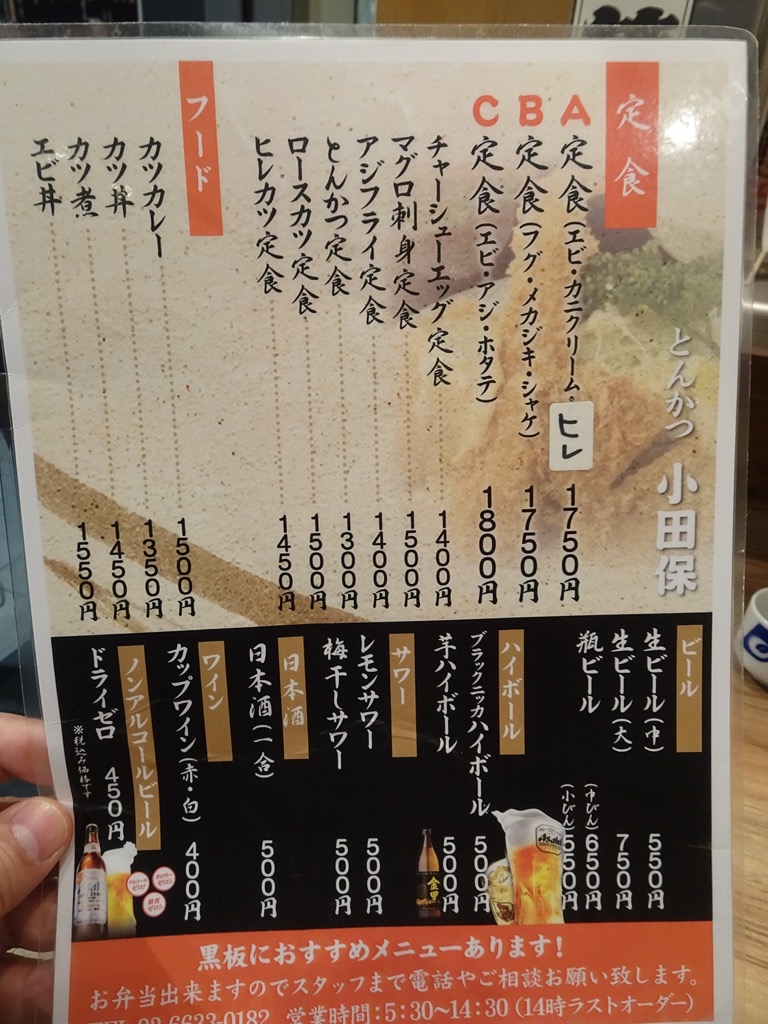 とんかつ 小田保
定食
A定食(エビ・カニクリーム・ヒレ 1750円
B定食(フグ・メカジキ・シャケ) 1750円
C定食(エビ・アジ・ホタテ) 1800円
チャーシューエッグ定食 1400円
マグロ刺身定食 1500円
アジフライ定食 1400円
とんかつ定食 1300円
ロースカツ定食 1500円
ヒレカツ定食 1450円
フード
カツカレー 1500円
カツ丼 1350円
カツ煮 1450円
エビ丼 1550円
ビール
生ビール(中) 550円
生ビール(大) 750円
瓶ビール (中びん) 650円
(小びん) 550円
ハイボール
ブラックニッカハイボール 500円
芋ハイボール 500円
サワー
レモンサワー 500円
梅干しサワー 500円
日本酒
日本酒(一合) 500円
ワイン
カップワイン(赤・白) 400円
ノンアルコールビール
ドライゼロ 450円
※税込み価格です
Asahi
黒板におすすめメニューあります!
お弁当出来ますのでスタッフまで電話やご相談お願い致します。
TEL 03-6633-0182 営業時間:5:30~14:30(14時ラストオーダー)